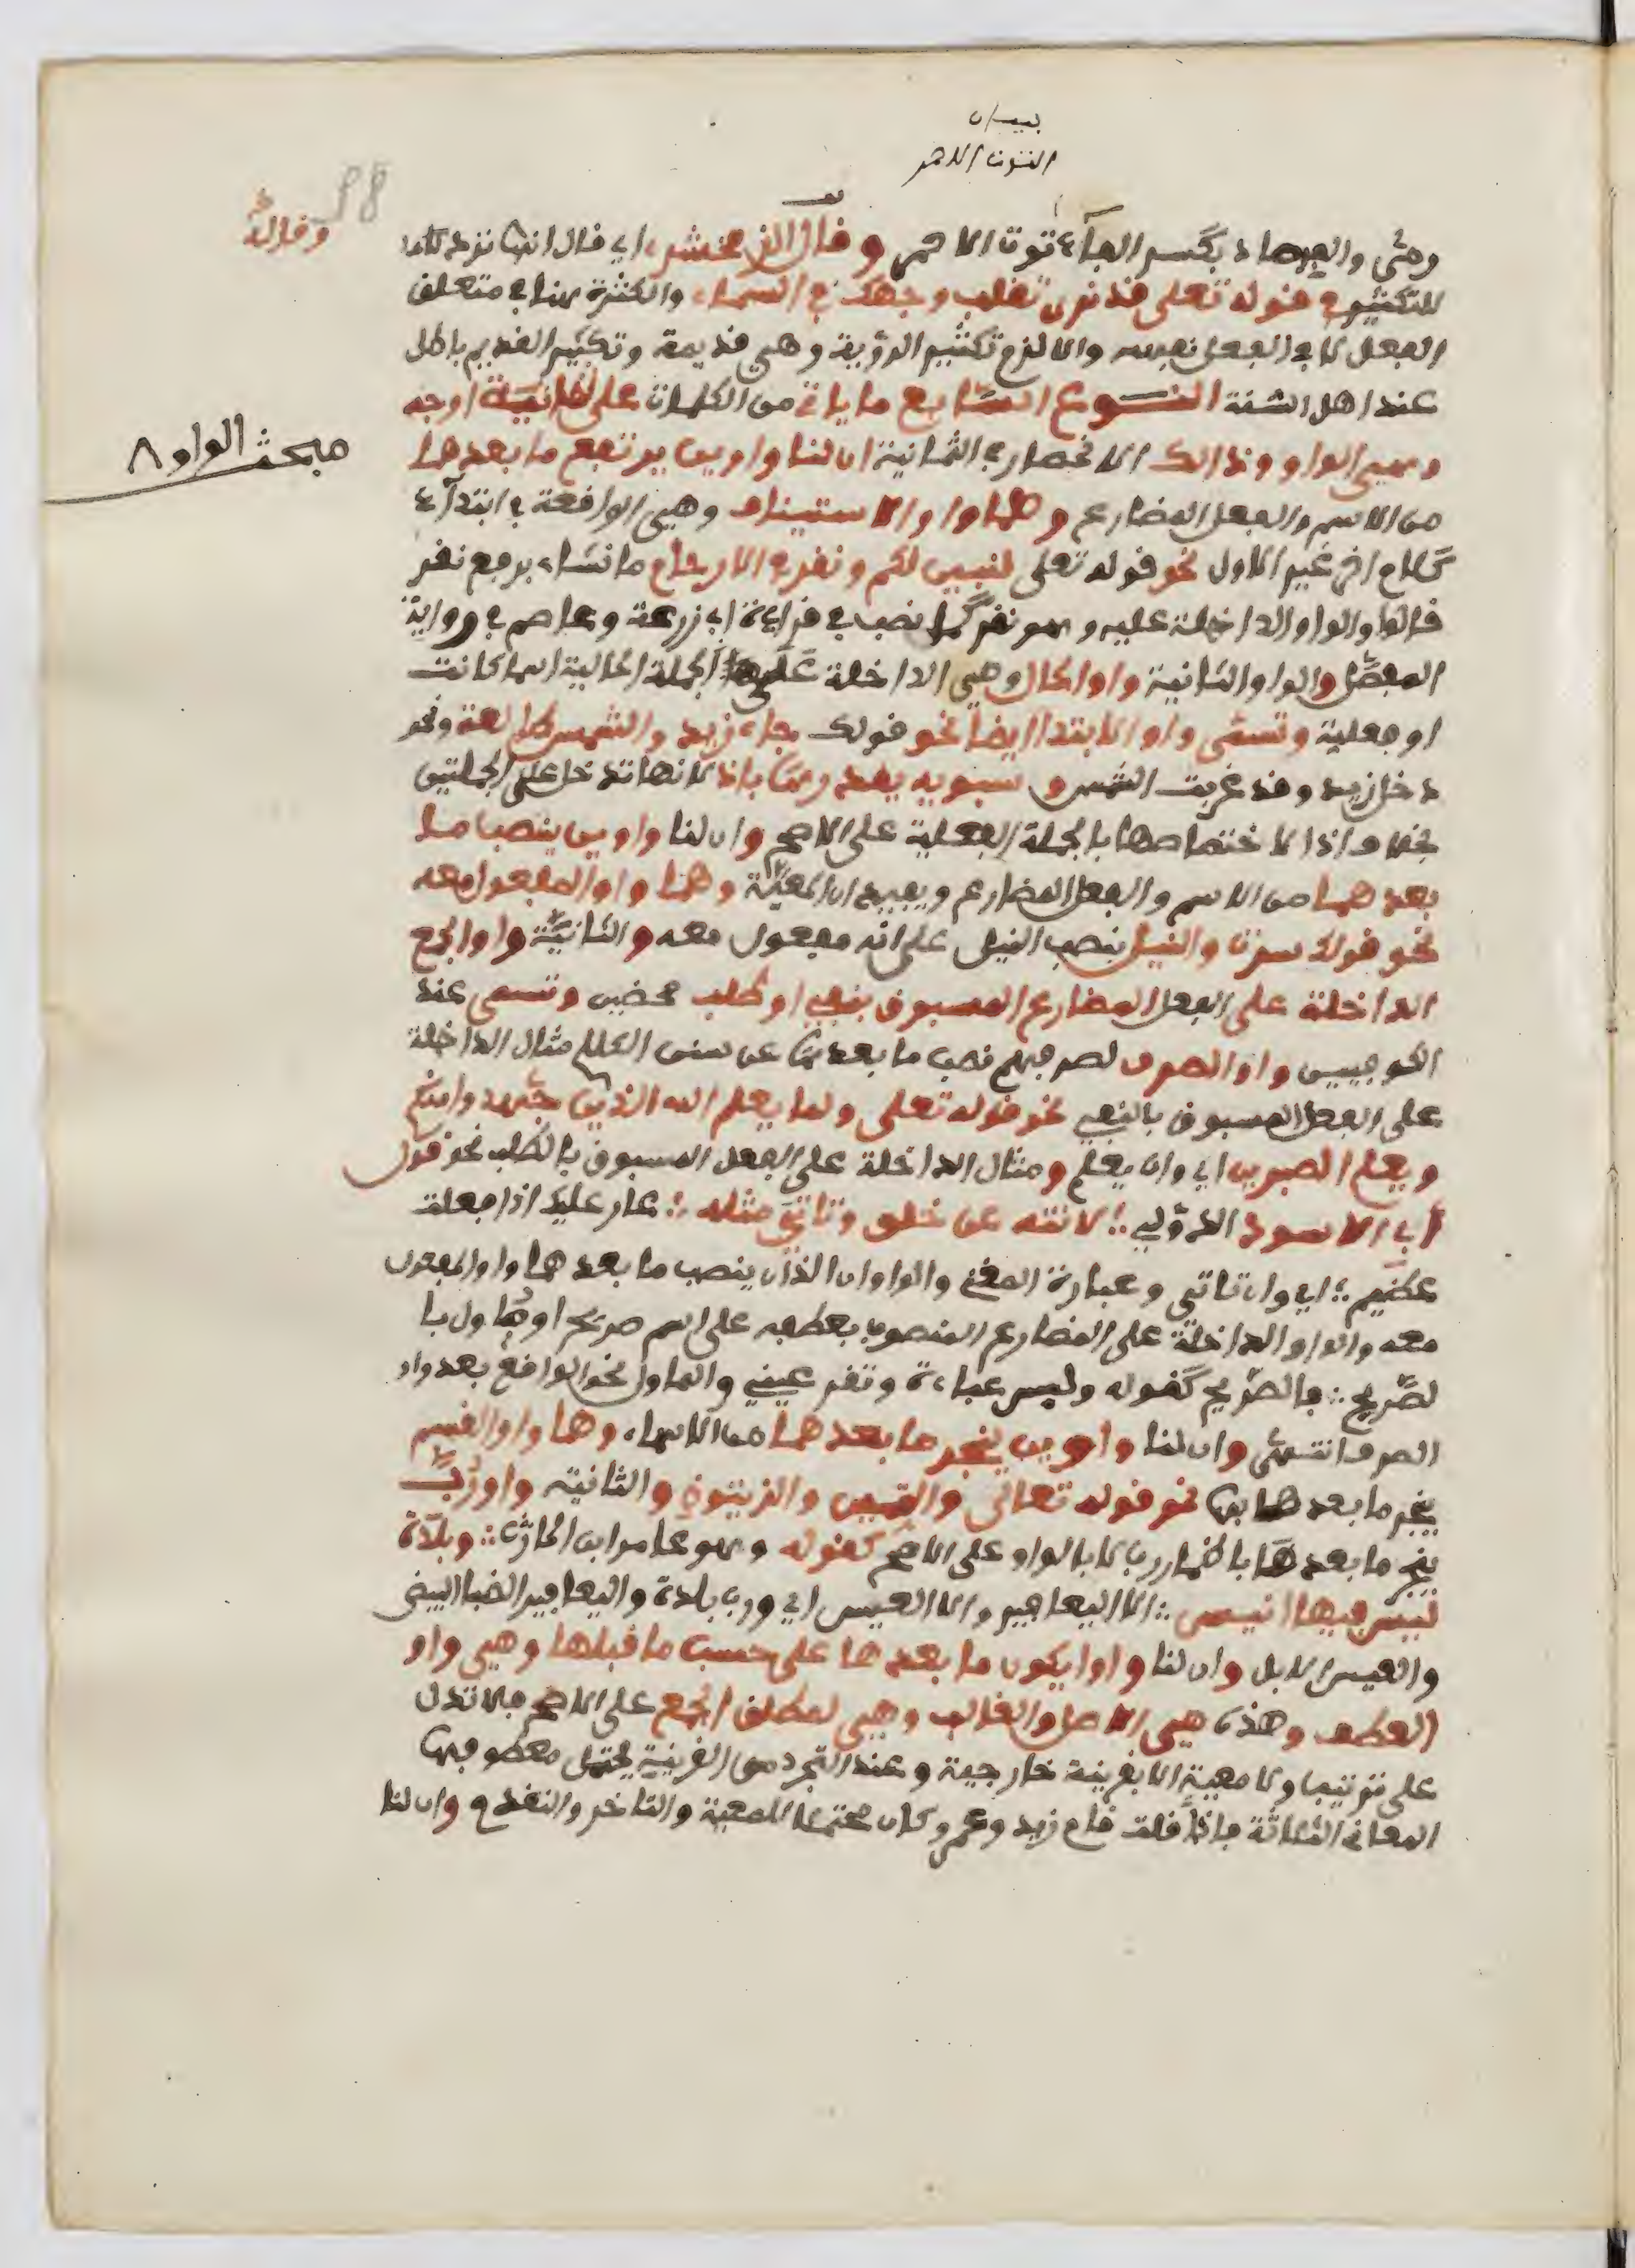 بيان
التوت الاحمر
88
وقاله
ومتى والفرصاد بكسر الفاء توت الاحمر وقال الزمخشري اي قال انها تزد كلاما
للتكثير في قوله تعلى قد نرى تقلب وجهك في السماء والكثرة هنا في متعلق
الفعل لا في الفعل نفسه والا لزم تكثير الرؤية وهي قديمة وتكثير القديم باطل
عند اهل السنة النوع السابع ما ياتي من الكلمات على ثمانية اوجه
مبحث الواو ٨
وهي الواو وذالك الانحصار في الثمانية ان لنا واوين يرتفع ما بعدهما
من الاسم والفعل المضارع وهما واو الاستيناف وهي الواقعة في ابتداء
كلام اخر غير الاول نحو قوله تعلى لنبين لكم ونقر في الارحام ما نشاء برفع نقر
قالوا والواو الداخلة عليه وهو نقر نصب في قراءة ابي زرعة وعاصم في رواية
المفضل والواو الثانية واو الحال وهي الداخلة على الجملة الحالية اسما كانت
او فعلية وتسمى واو الابتدا ايضا نحو قولك جاء زيد والشمس طالعة ونحو
دخل زيد وقد غربت الشمس وسبويه يقدرها باذ لانها تدخل على الجملتين
بخلاف اذا لاختصاصها بالجملة الفعلية على الاصح وان لنا واوين ينصب ما
بعدهما من الاسم والفعل المضارع ويفيد ان المعية وهما واو المفعول معه
نحو قولك سرت والنيل بنصب النيل على انه مفعول معه والثانية واو الجمع
الداخلة على الفعل المضارع المسبوق بنفي او طلب محضين وتسمى عند
الكوفيين واو الصرف لصرفهم نصب ما بعدها عن سنن الكلام مثال الداخلة
على الفعل المسبوق بالنفي نحو قوله تعلى ولما يعلم الله الذين جهدوا منكم
ويعلم الصبرين اي وان يعلم ومثال الداخلة على الفعل المسبوق بالطلب نحو قول
ابي الاسود الدؤلي ؛ لا تنه عن خلق وتاتي مثله ؛ عار عليك اذا فعلت
عظيم ؛ اي وان تاتي وعبارة المغني والواوان الذان ينصب ما بعدهما واو المفعول
معه والواو الداخلة على المضارع المنصوب بعطفه على اسم صريح او ماول با
لصريح ؛ فالصريح كقوله ولبس عباءة وتقر عيني والماول نحو الواقع بعد واو
الصرف انتهى وان لنا واوين ينجر ما بعدهما من الاسماء وهما واو القسم
ينجر ما بعدها بها نحو قوله تعالى والتين والزيتون والثانية واو رب
ينجر ما بعدها باضمار رب لا بالواو على الاصح كقوله وهو عامر ابن الحارث ؛ وبلدة
ليس فيها انيس ؛ الا اليعافير والا العيس اي ورب بلدة واليعافير الضبا البيض
والعيس الابل وان لنا واوا يكون ما بعدها على حسب ما قبلها وهي واو
العطف وهذه هي الاصل والغالب وهي لمطلق الجمع على الاصح فلا تدل
على ترتيب ولا معية الا بقرينة خارجية وعند التجرد من القرينة يحتمل معطوفها
المعاني الثلاثة فاذا قلت قام زيد وعمرو كان محتملا للمعية والتاخر والتقدم وان لنا